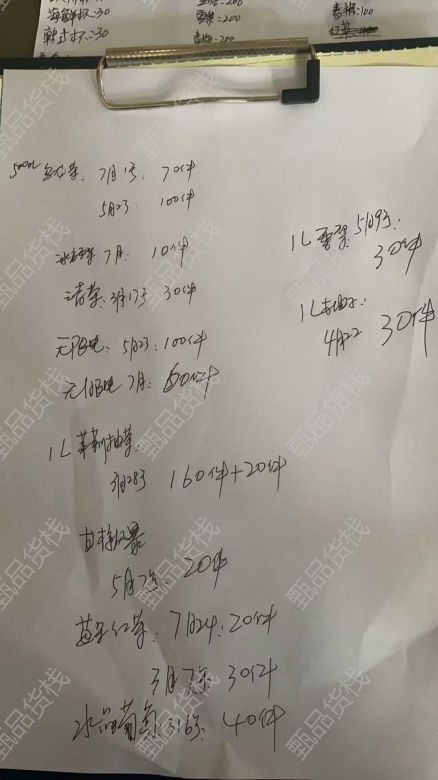 海鲜杯:30
雪碧:200
香橙:100
韩式杯:30
500ml 乌龙茶: 7月1号: 70件
5月23: 100件
冰红茶 7月: 10件
1L 雪梨: 5月9号:
30件
清茶: 3月17号 30件
1L 柚子:
4月22 30件
无限电: 5月23: 100件
无限电 7月: 60件
1L 茉莉柚茶
3月28号 160件+20件
西柚
5月7号: 20件
蓝莓红茶: 7月24: 20件
3月7号: 30件
水晶葡萄: 316号: 40件
甄品货栈